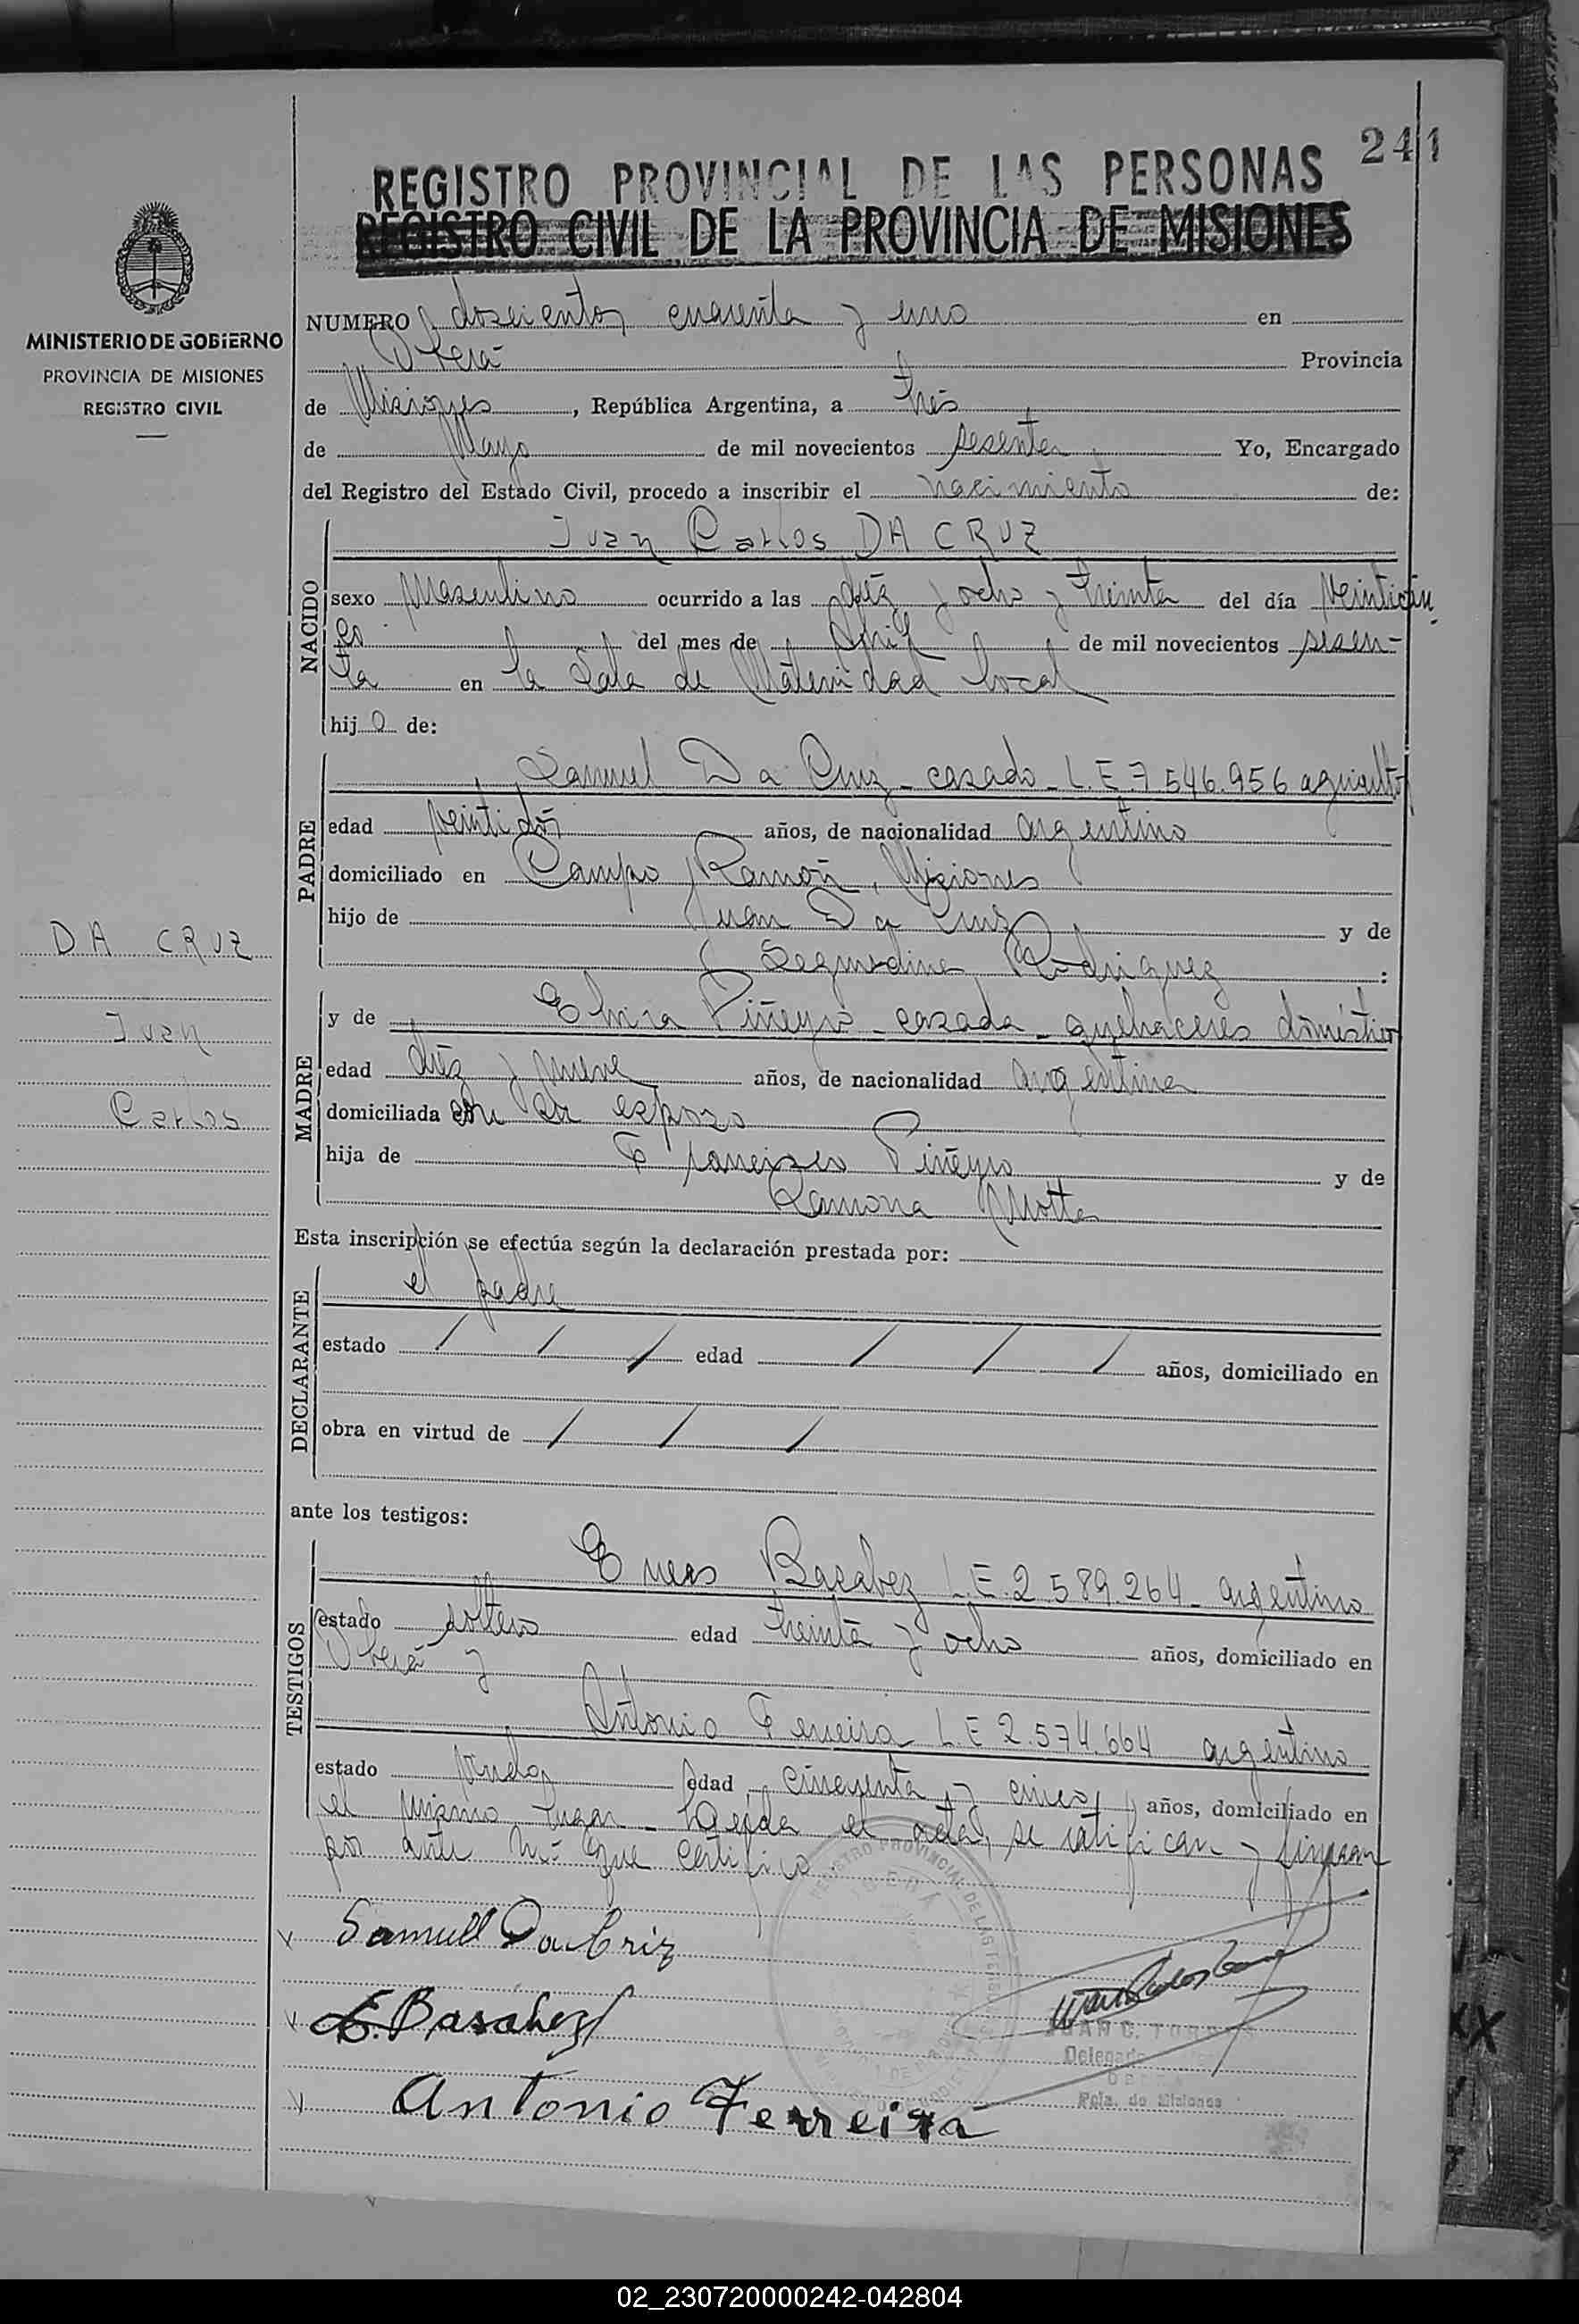 241
REGISTRO PROVINCIAL DE LAS PERSONAS
REGISTRO CIVIL DE LA PROVINCIA DE MISIONES
MINISTERIO DE GOBIERNO
PROVINCIA DE MISIONES
REGISTRO CIVIL
NUMERO doscientos cuarenta y uno en
Oberá Provincia
de Misiones, República Argentina, a tres
de Mayo de mil novecientos sesenta Yo, Encargado
del Registro del Estado Civil, procedo a inscribir el nacimiento de:
NACIDO
Juan Carlos DA CRUZ
sexo Masculino ocurrido a las diez y ocho y treinta del día veinticin
co del mes de Abril de mil novecientos sesen-
ta en la Sala de Maternidad local
hijo de:
PADRE
Samuel Da Cruz - casado - L.E. 7.546.956 agricultor
edad veintidós años, de nacionalidad argentino
domiciliado en Campo Ramón, Misiones
hijo de Juan Da Cruz y de
Segundina Rodriguez :
DA CRUZ
Juan
Carlos
MADRE
y de Elvira Piñeyro - casada - quehaceres domésticos
edad diez y nueve años, de nacionalidad argentina
domiciliada con su esposo
hija de Francisco Piñeyro y de
Ramona Motta
Esta inscripción se efectúa según la declaración prestada por:
DECLARANTE
el padre
estado / / / edad / / / años, domiciliado en
obra en virtud de / / /
ante los testigos:
TESTIGOS
Eneas Basabez L.E. 2.589.264 - argentino
estado soltero edad treinta y ocho años, domiciliado en
Oberá y
Antonio Ferreira L.E 2.574.664 argentino
estado viudo, edad cincuenta y cinco, años, domiciliado en
el mismo lugar - Leída el acta, se ratifican y firman
por ante mí que certifico
Samuell Da Criz
E. Basabez
Antonio Ferreira
REGISTRO PROVINCIAL DE LAS PERSONAS
OBERÁ
JUAN C. TORRES
Delegado
OBERA
Pcia. de Misiones
02_230720000242-042804